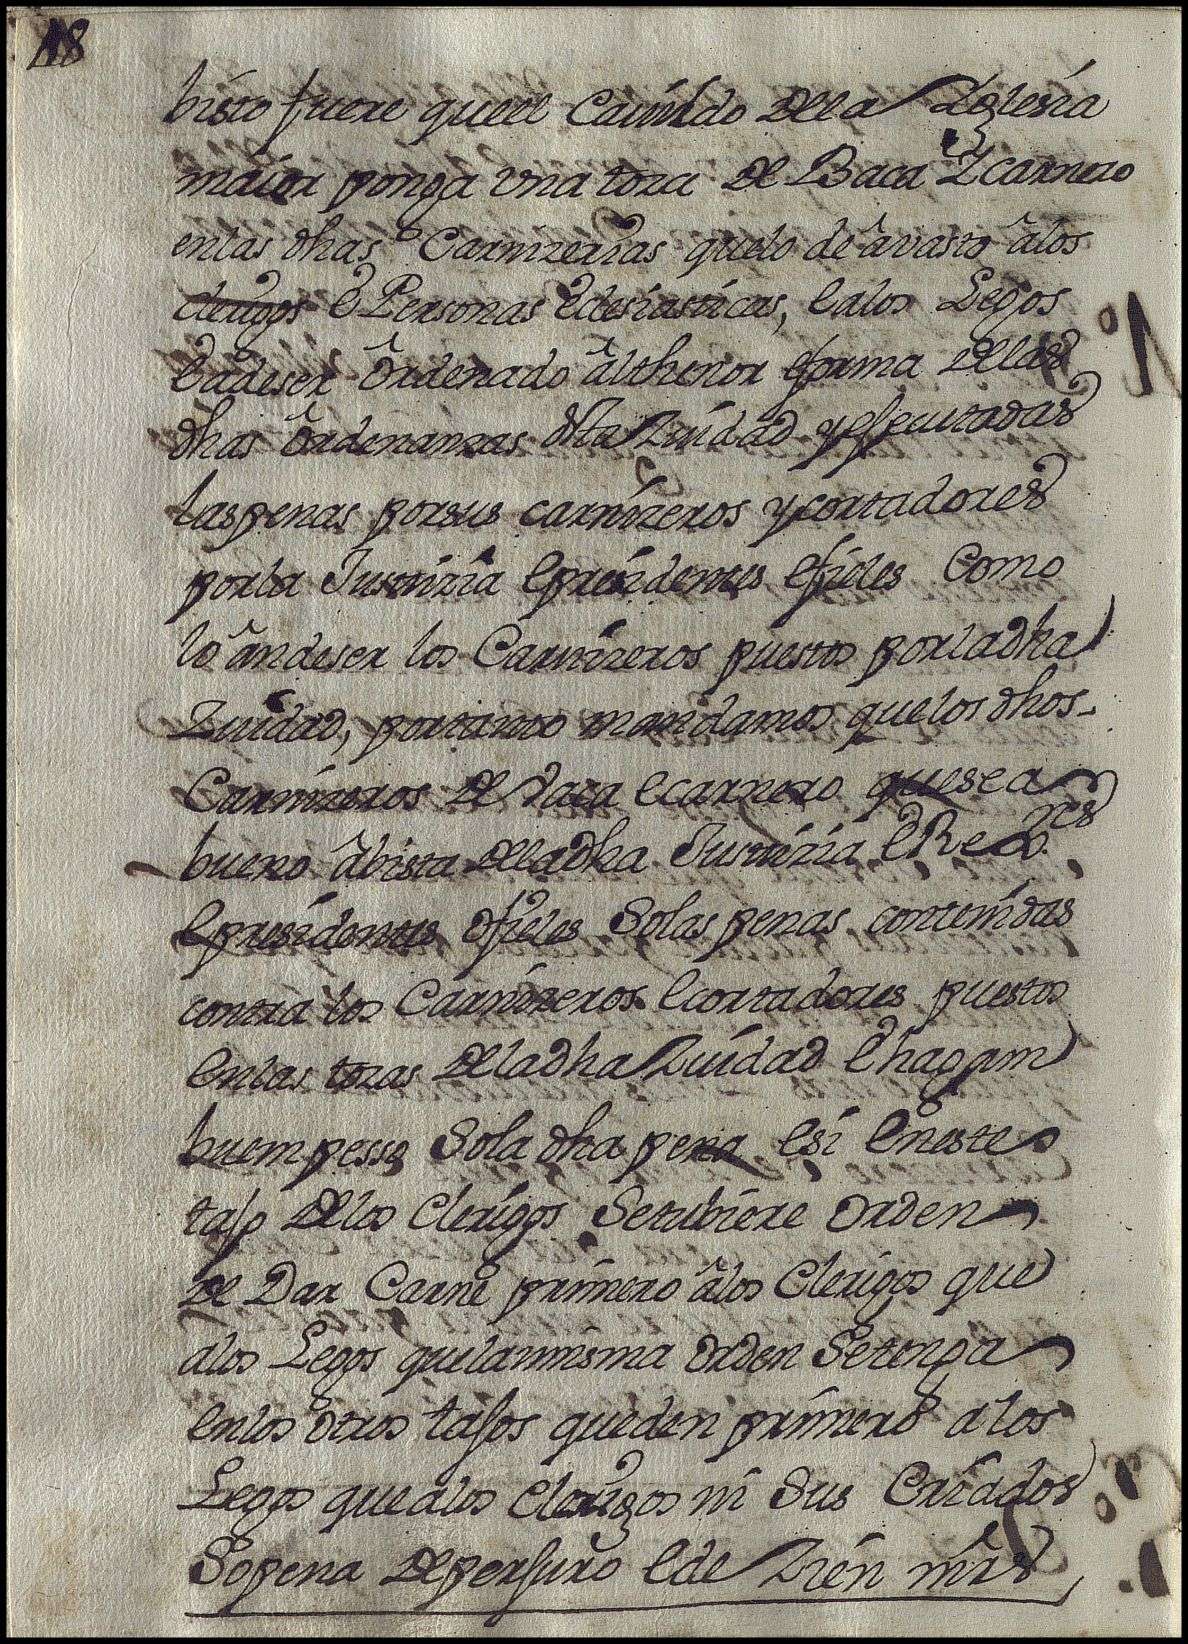 18
bisto fuere queel Cavildo della Iglesia
maior ponga vna toza de Baca Ecarnero
enlas dhas Carnizerias quelo de avasto âlos
clerigos E Personas Eclesiasticas, Ealos Legos
Eâdeser Ôrdenado âlthenor eforma dellas
dhas Ôrdenanzas dsta Ziudad yesecutadas
laspenas porsus carnizeros ycortadores
porla Justizia Epresidentes Efieles Como
lo ândeser los Carnizeros puestos porladha
Ziudad, portanto mandamos quelos dhos
Carnizeros de Vaca Ecarnero quesea
bueno âbista delladha Justizia ERe res
Epresidentes efieles Solas penas contenidas
contra los Carnizeros Ecortadores puestos
Enlas tozas delladha Ziudad Ehagam
buempesso Sola dha pena Esi Eneste
tajo dellos Clerigos Setubiere orden
de Dar Carne primero âlos Clerigos que
alos Legos quelamisma orden Setenga
Enlos otros tajos queden primero alos
Legos quealos Clerigos ni Sus Criados
Sopena deperjuro Ede Zien mrs